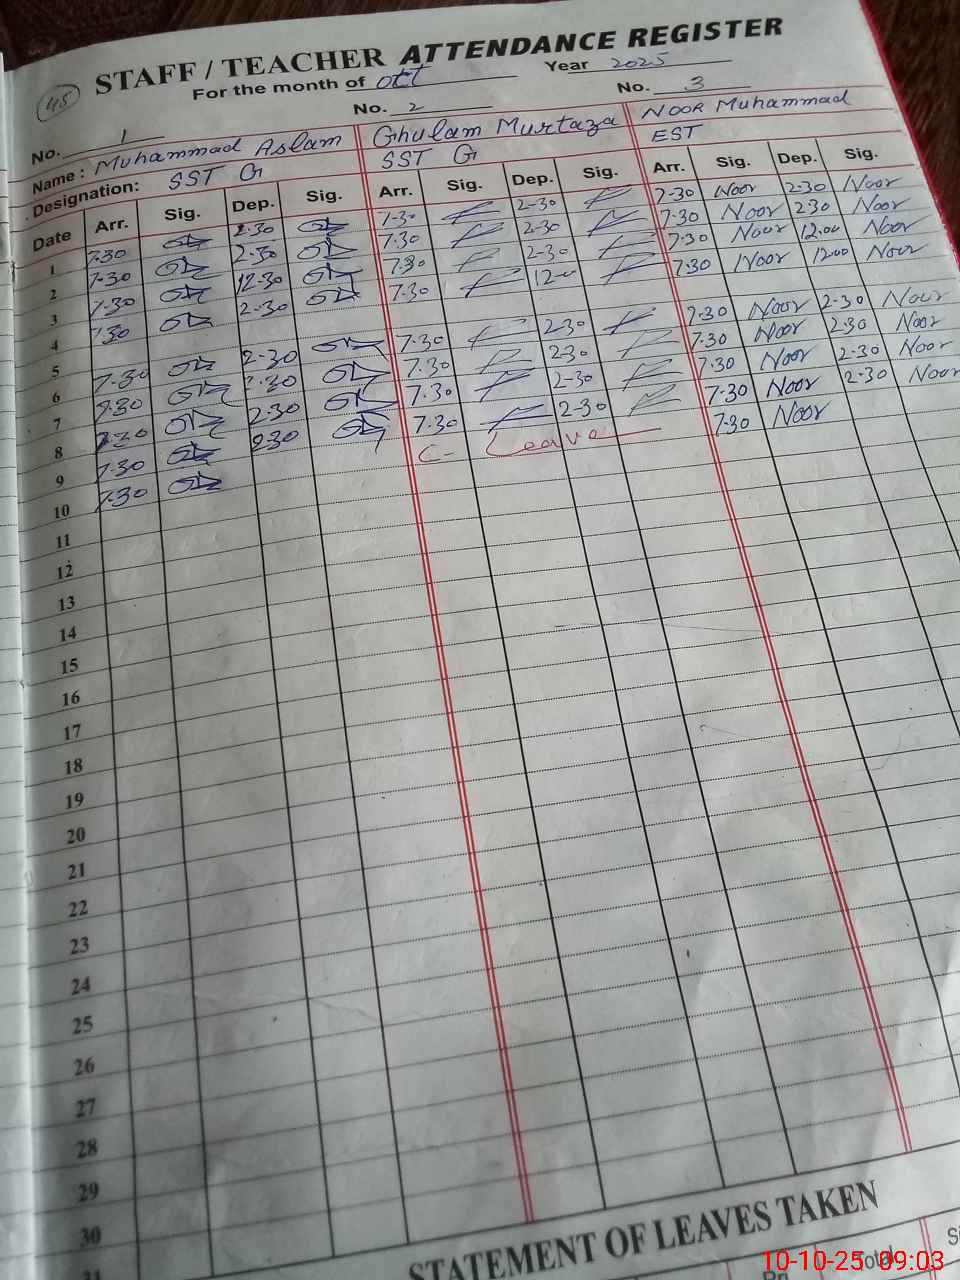 45
STAFF / TEACHER ATTENDANCE REGISTER
For the month of Oct Year 2025
No. 1 No. 2 No. 3
Name : Muhammad Aslam Ghulam Murtaza NOOR Muhammad
Designation: SST G SST G EST
Date Arr. Sig. Dep. Sig. Arr. Sig. Dep. Sig. Arr. Sig. Dep. Sig.
1 7.30 2.30 7-30 2-30 7-30 Noor 2-30 Noor
2 7-30 2-30 7.30 2-30 7.30 Noor 2.30 Noor
3 7-30 12-30 7.30 2-30 7.30 Noor 12.00 Noor
4 7.30 2-30 7-30 12- 7.30 Noor 12.00 Noor
5
6 7-30 2-30 7.30 2-30 7-30 Noor 2-30 Noor
7 7.30 2.30 7.30 2-30 7.30 Noor 2.30 Noor
8 7.30 2.30 7.30 2-30 7.30 Noor 2.30 Noor
9 7.30 2.30 7.30 2-30 7.30 Noor 2.30 Noor
10 7.30 C- Leave 7.30 Noor
11
12
13
14
15
16
17
18
19
20
21
22
23
24
25
26
27
28
29
30
31
STATEMENT OF LEAVES TAKEN
Total
10-10-25 09:03